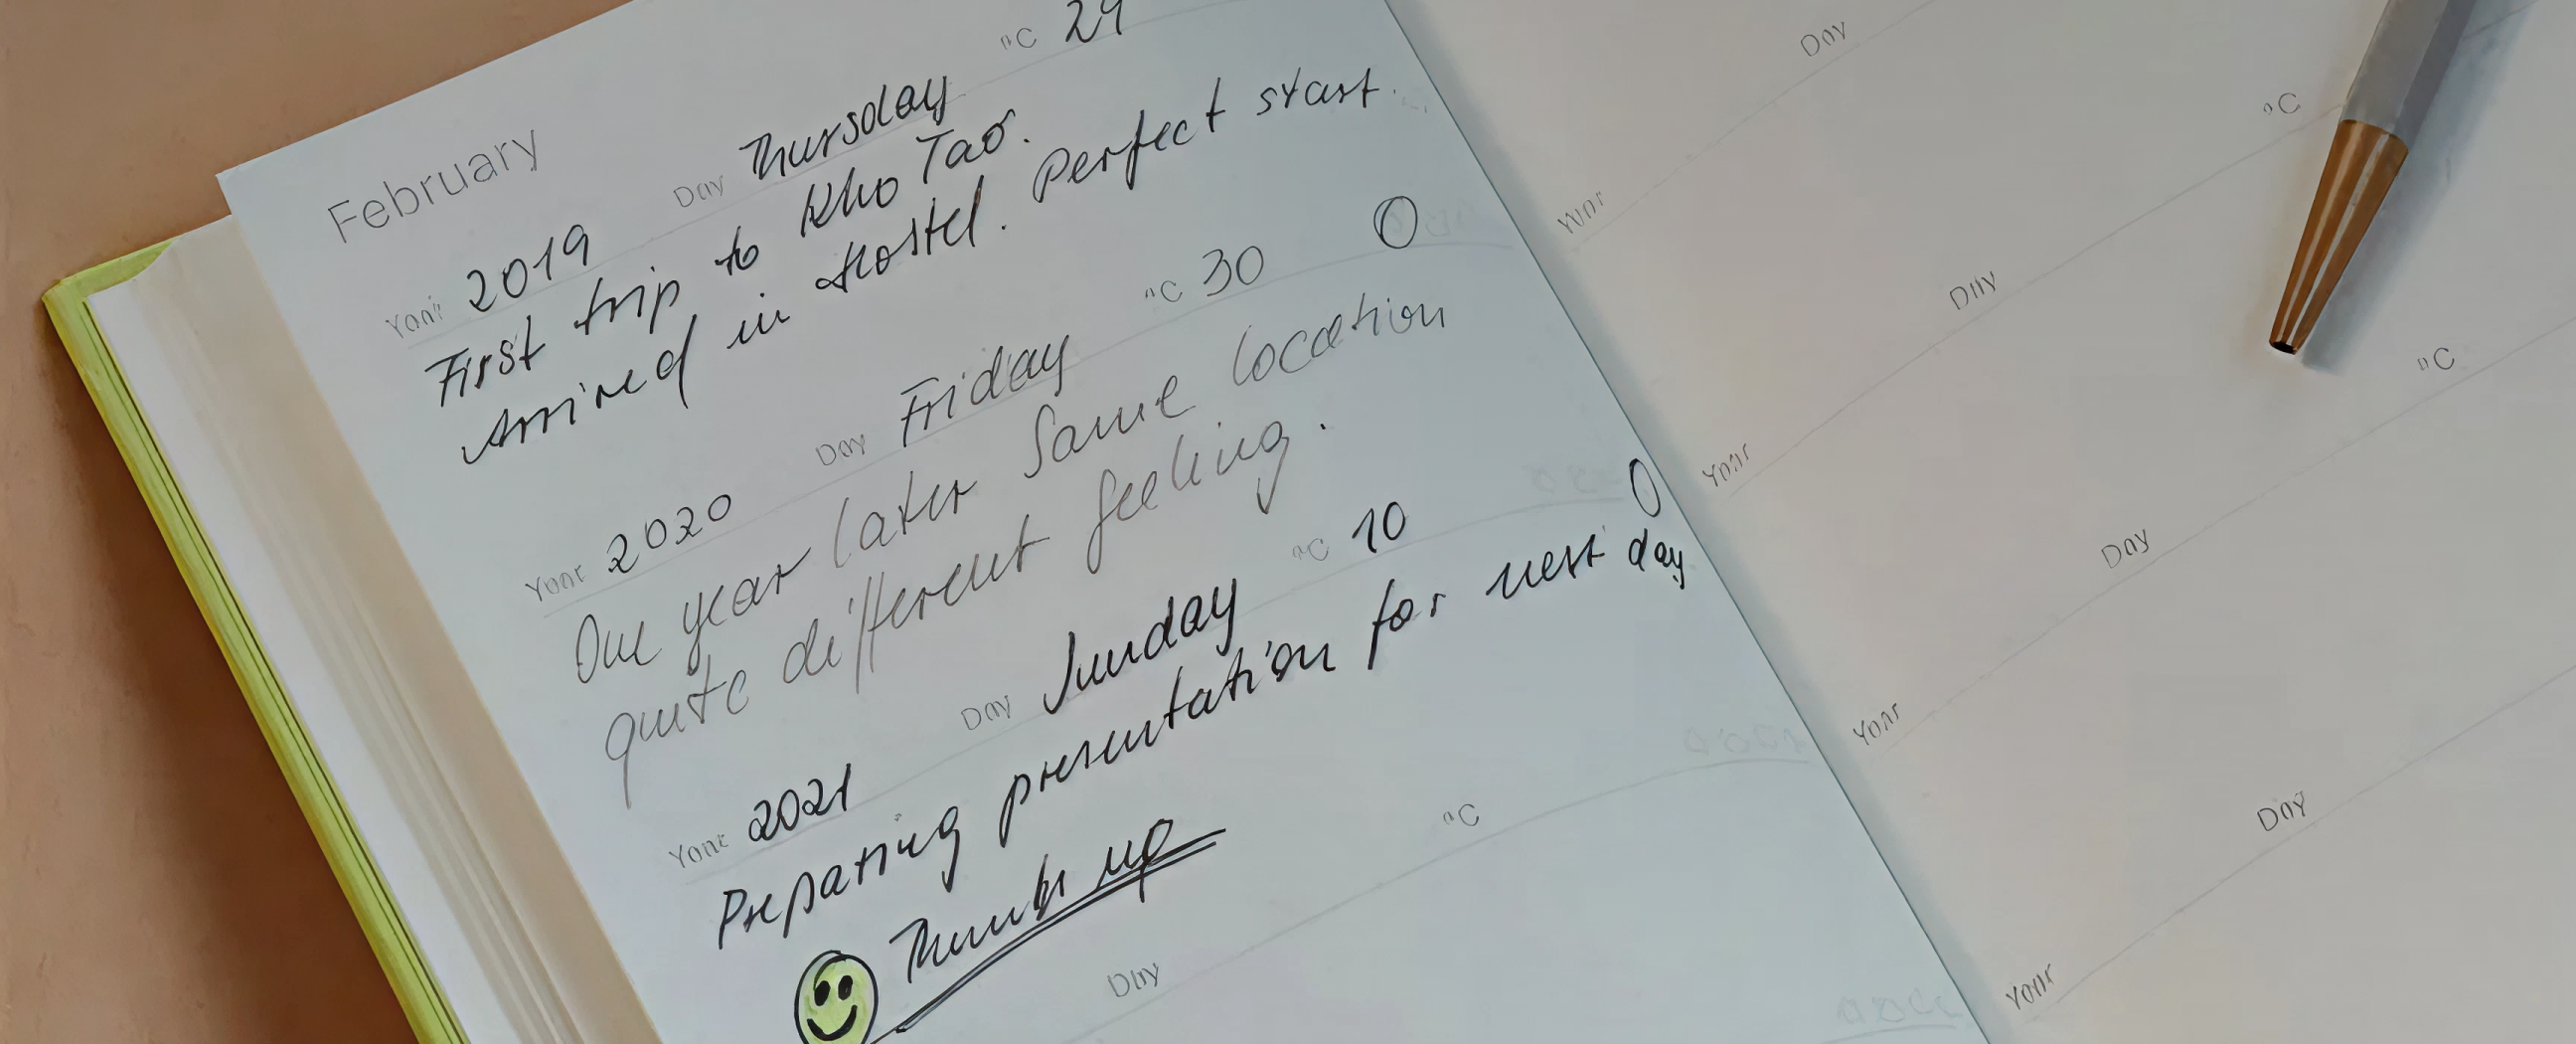 February
Year 2019 Day Thursday °C 29
First trip to Kho Tao.
Arrived in Hostel. Perfect start.
Year 2020 Day Friday °C 30
One year later Same location
quite different feeling.
Year 2021 Day Sunday °C 10
Preparing presentation for next day
Thumbs up
Day °C
Year Day
Year Day °C
Year Day °C
Year Day